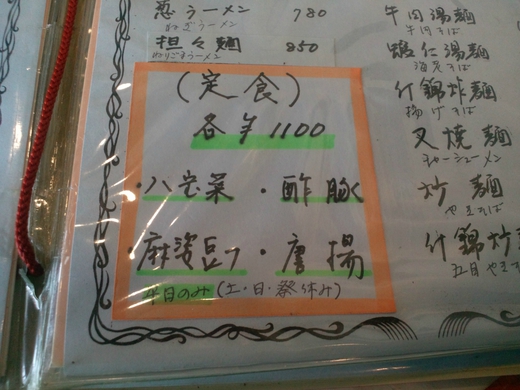 葱ラーメン 780
ねぎラーメン
担々麺 850
ねりごまラーメン
(定食)
各¥1100
・八宝菜 ・酢豚
・麻婆豆フ ・唐揚
平日のみ(土・日・祭休み)
牛肉湯麺
牛肉そば
蝦仁湯麺
海老そば
什錦炸麺
揚げそば
叉焼麺
チャーシューメン
炒麺
やきそば
什錦炒
五目やき